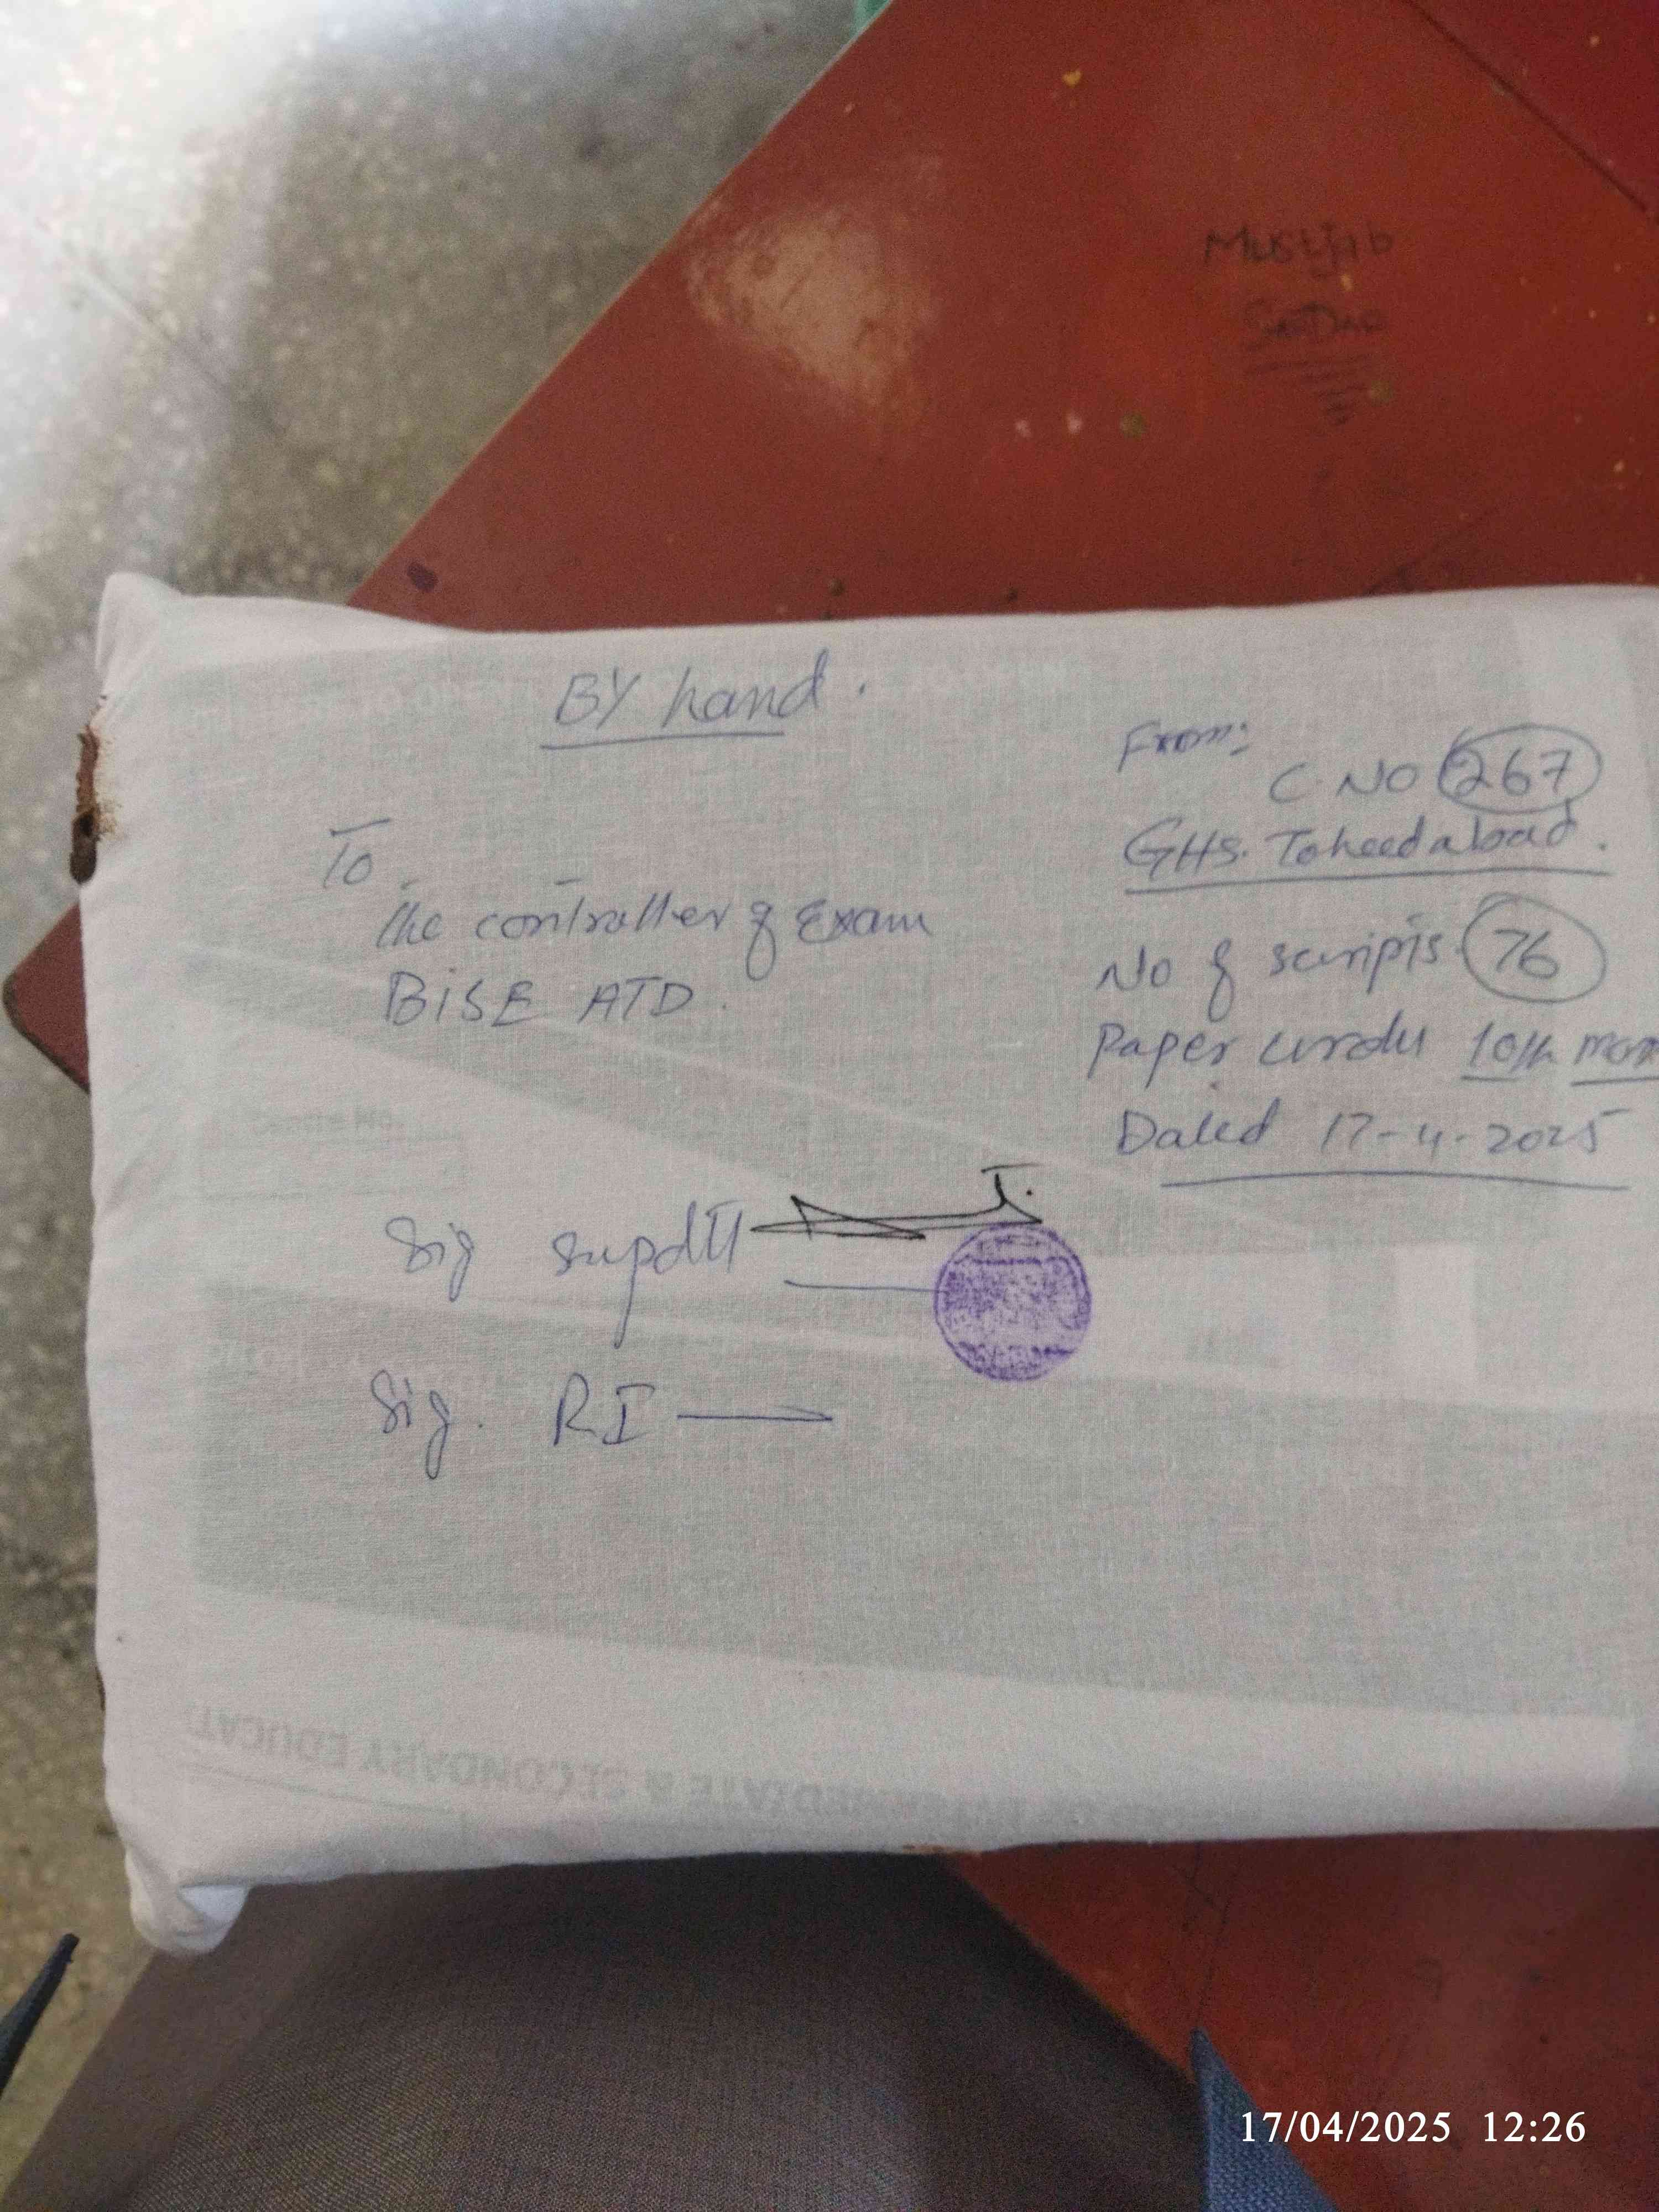 Mustjab
BY hand.
From:
C. NO 267
GHS. Toheedabad.
To
The controller of Exam
BISE ATD.
No of scripts 76
Paper urdu 10th mor
Dated 17-4-2025
Sig supdtt
Sig. RI
INTERMEDIATE & SECONDARY EDUCAT
17/04/2025 12:26